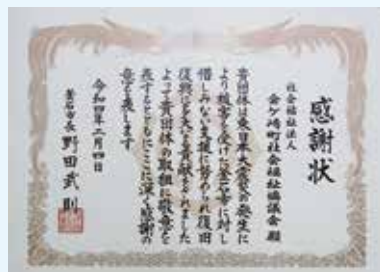 感謝状
社会福祉法人
金ケ崎町社会福祉協議会 殿
貴団体は東日本大震災の発生に
より被害を受けた釜石市に対し
惜しみない支援に努められ復旧
復興に多大な貢献をされました
よって貴団体の取組に敬意を
表するとともにここに深く感謝の
意を表します
令和四年二月四日
釜石市長 野田武則